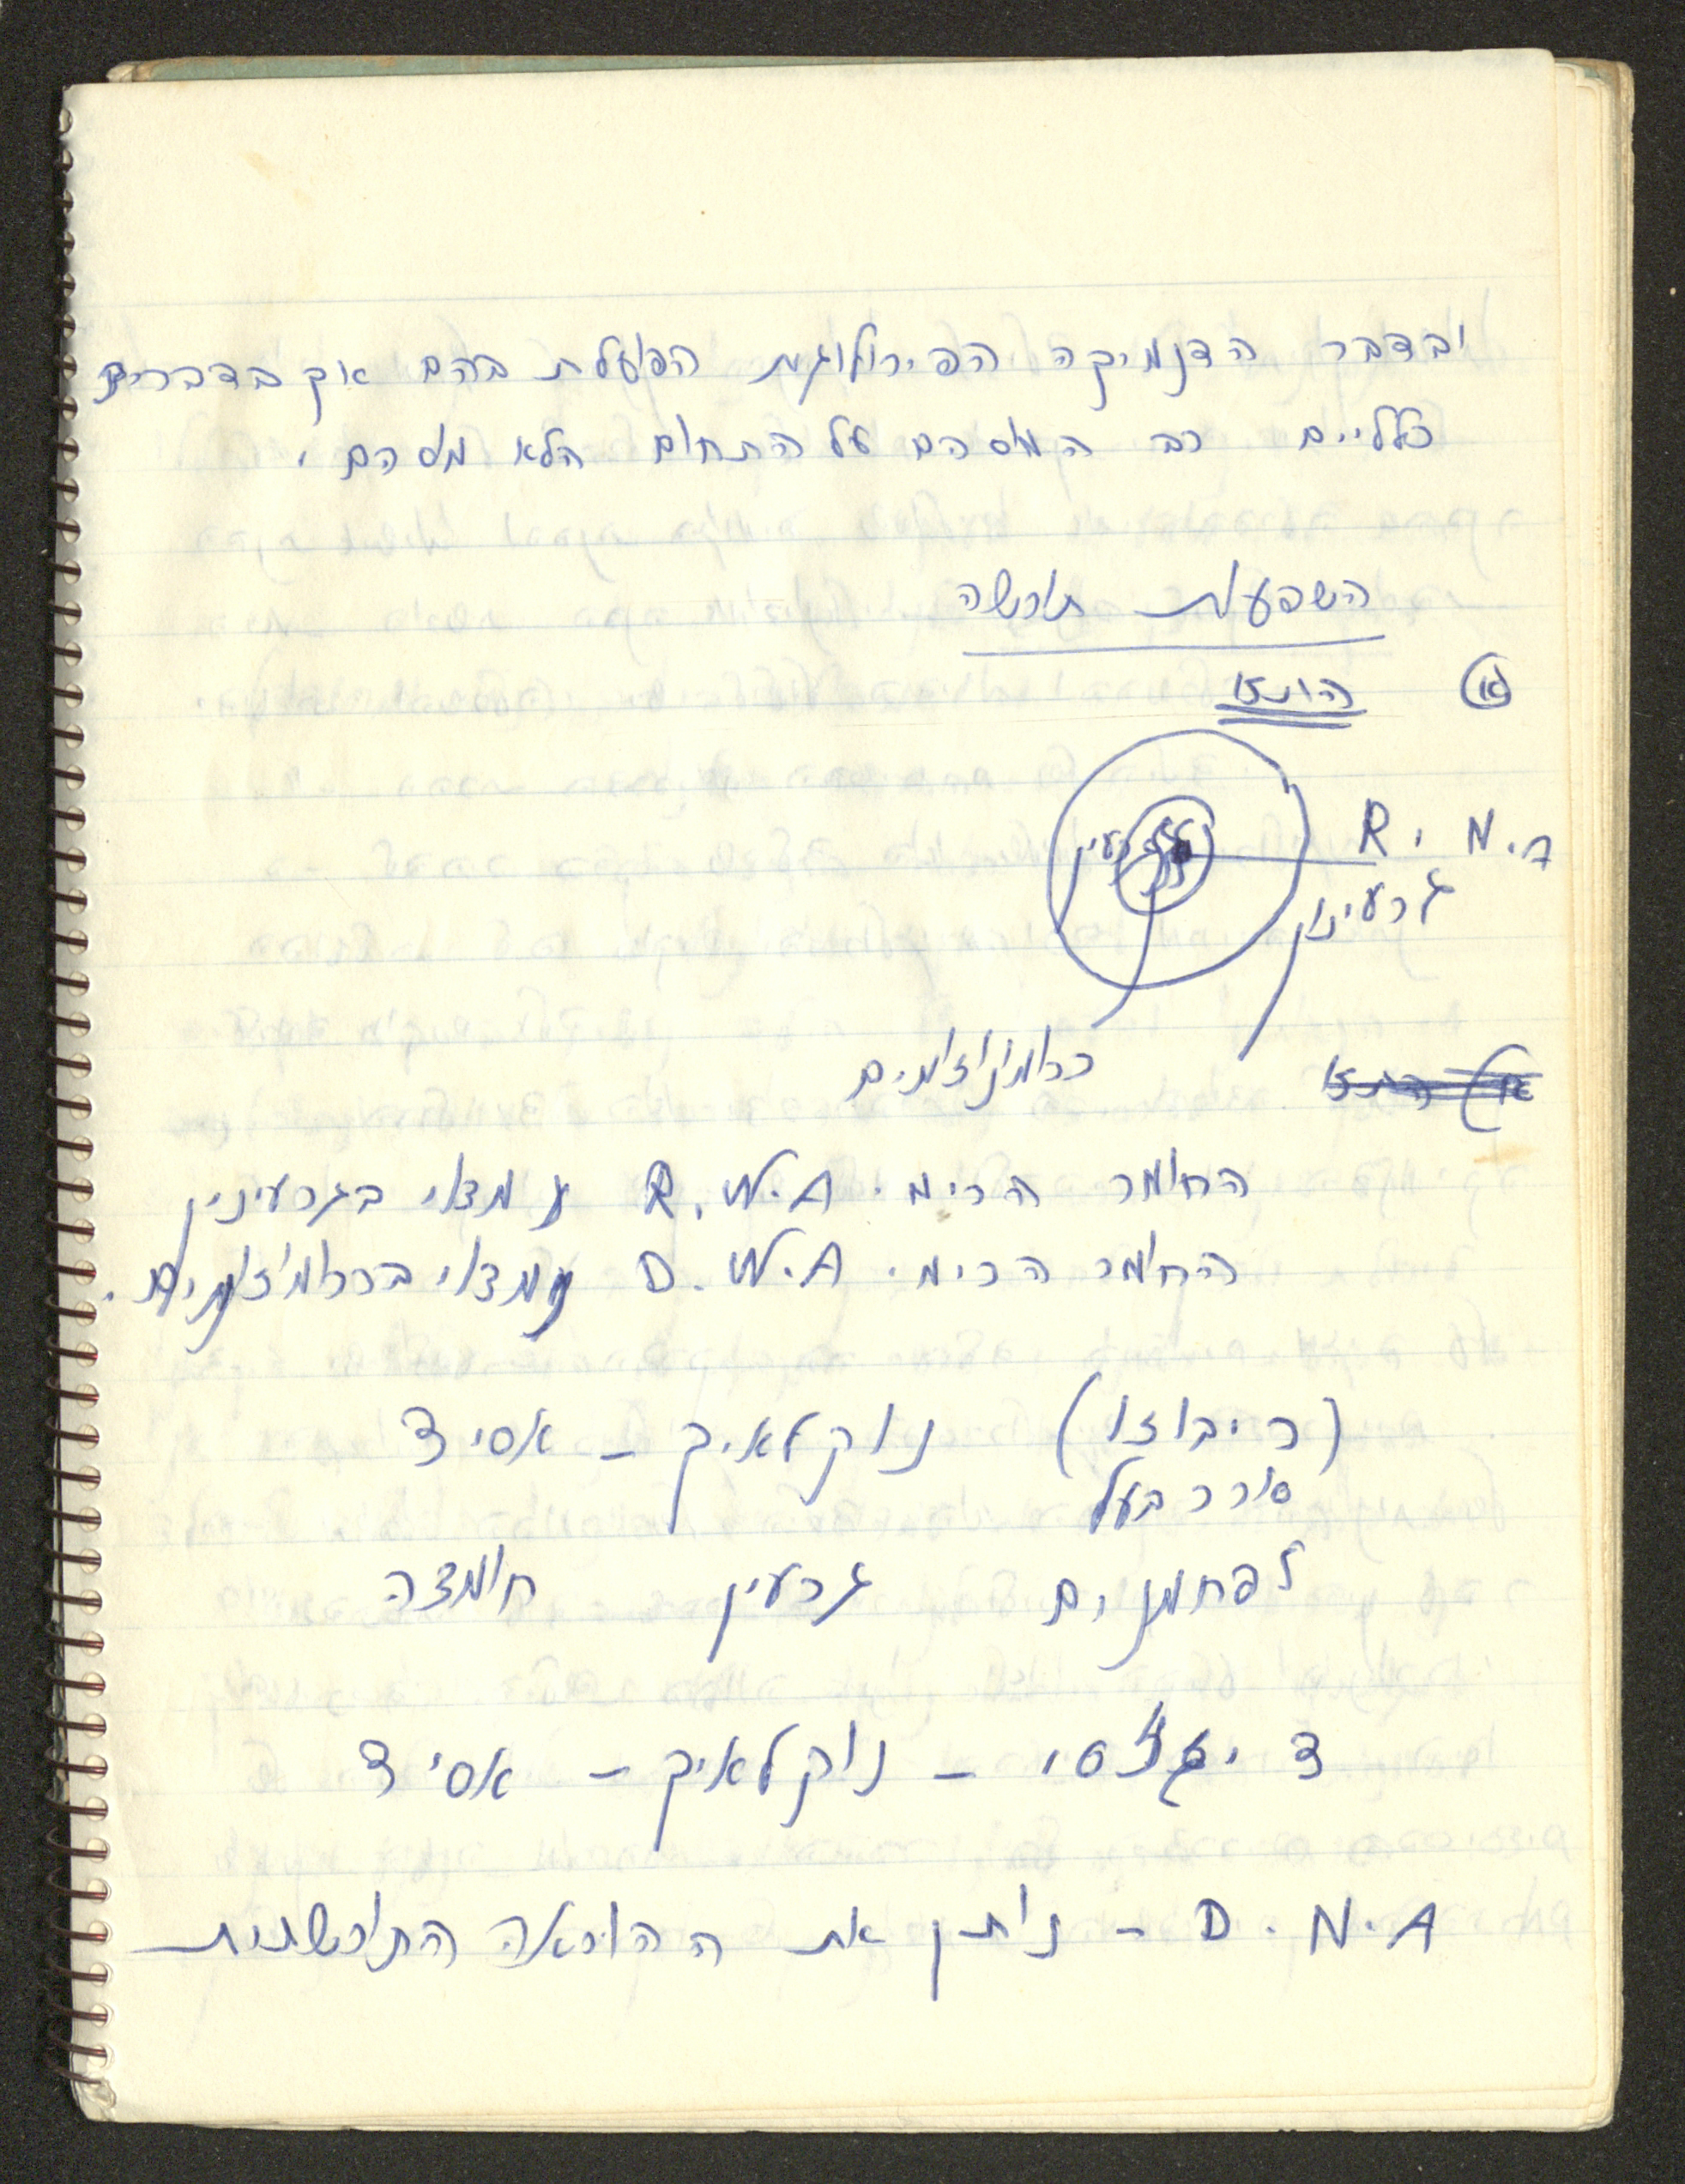 ובדבר הדנמיקה הפיזולוגית הפועלת בהם אך בדברים
כלליים רב המוסהם על התחום הלא מוסהם.
השפעות תורשה
א) התא
גרעין
R. N. A
גרעינון
כרומוזומים
א) התא
החומר הכימי R.N.A נמצא בגרעינון
החומר הכימי D.N.A נמצא בכרומוזומים.
(ריבוזו) נוקלאיק - אסיד
סוכר בעל
לפחמנים גרעין חומצה
ד י סי - נוקלאיק - אסיד
D.N.A - נותן את ההוראה התורשתית